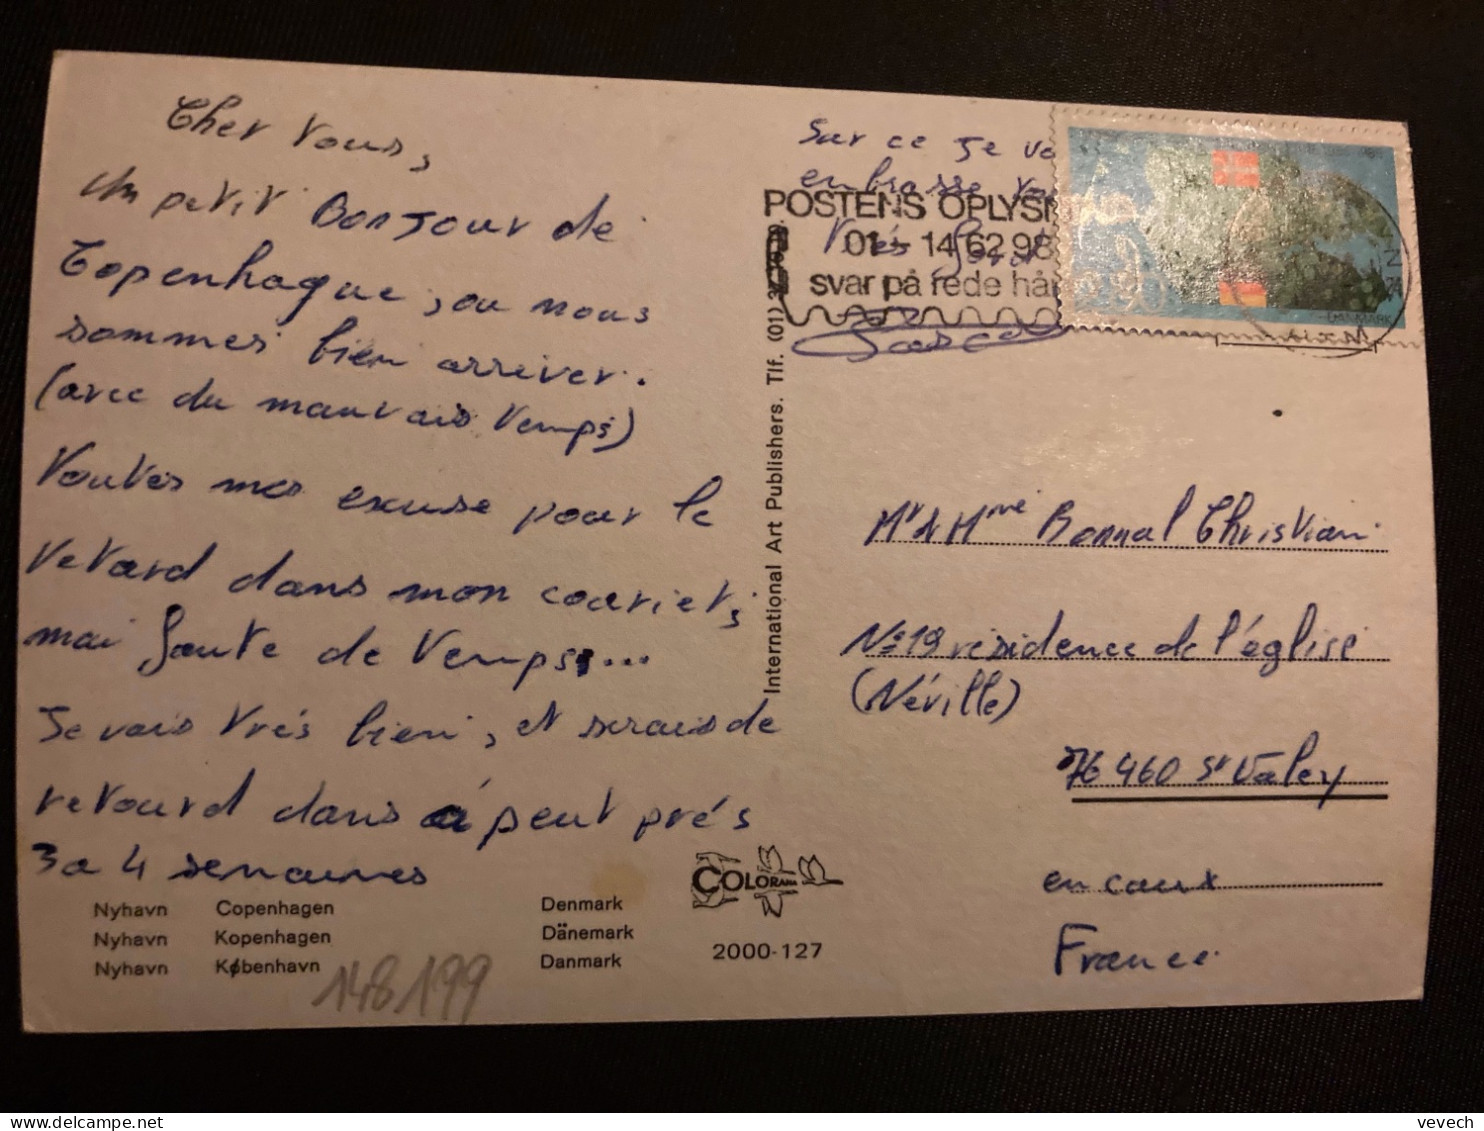 Cher vous,
Un petit Bonjour de
Copenhague, ou nous
sommes bien arriver.
(avec du mauvais temps)
toutes mes excuse pour le
retard dans mon courier,
mai faute de temps...
Je vais trés bien, et serais de
retourd dans à peut prés
3 a 4 semaines
Sur ce je vo
embrasse
trés
Pascal
POSTENS OPLYSN
01 - 14 62 98
svar på rede hå
DANMARK
International Art Publishers. Tlf. (01)
Mr & Mme Bonnal Christian
N° 19 résidence de l'église
(Néville)
76 460 St Valery
en caux
France
Nyhavn Copenhagen Denmark
Nyhavn Kopenhagen Dänemark
Nyhavn København Danmark
COLORAMA
2000-127
148199
vevech